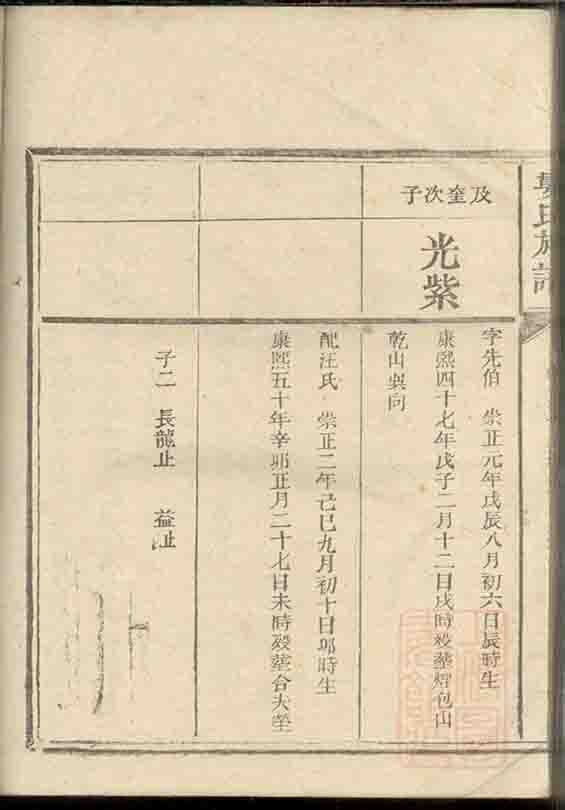 氏族譜
及奎次子
光紫
字先伯 崇正元年戊辰八月初六日辰時生
康熙四十七年戊子二月十二日戌時歿葬 包山
乾山巽向
配汪氏 崇正二年己巳九月初十日卯時生
康熙五十年辛卯正月二十七日未時歿葬合夫塋
子二 長龍止 益止